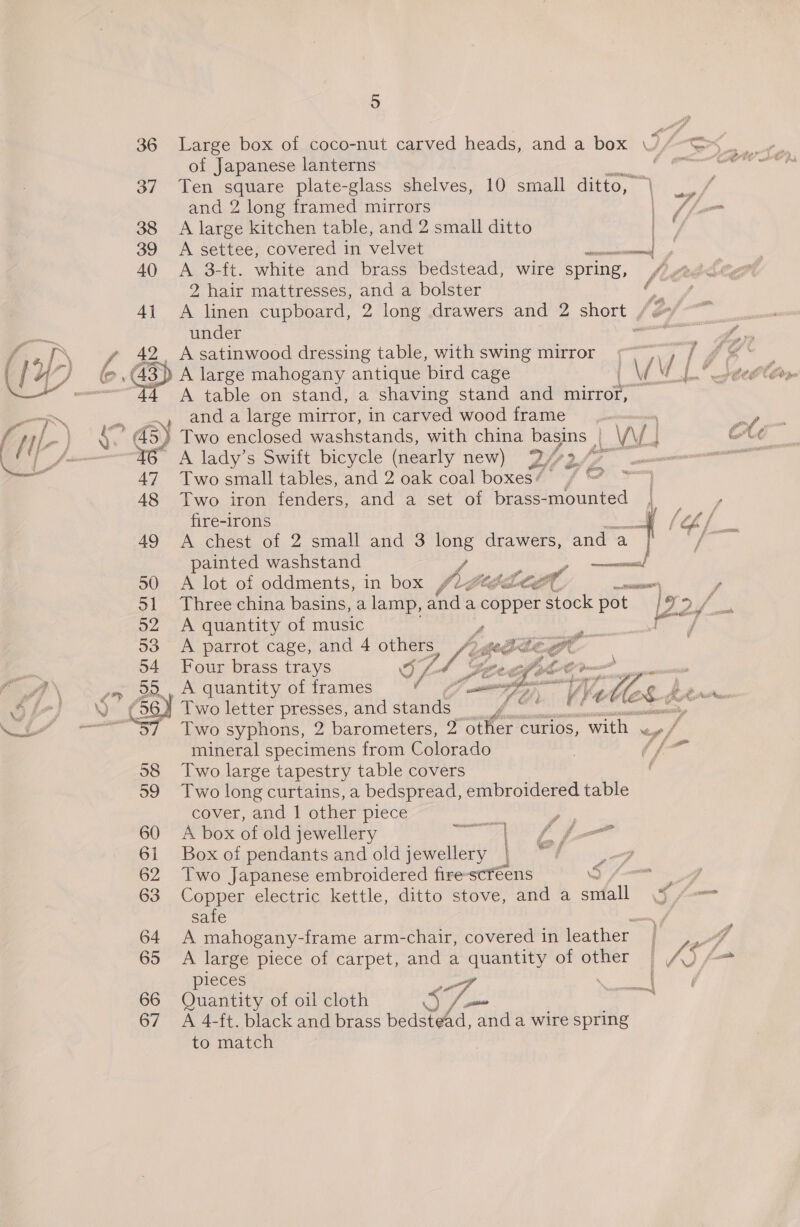 5
36 Large box of coco-nut carved heads, and a box
of Japanese lanterns
37 Ten square plate-glass shelves, 10 small ditto,
and 2 long framed mirrors
38 A large kitchen table, and 2 small ditto
39 A settee, covered in velvet
40 A 3-ft. white and brass bedstead, wire spring,
2 hair mattresses, and a bolster
41 A linen cupboard, 2 long drawers and 2 short
under
42 A satinwood dressing table, with swing mirror
43 A large mahogany antique bird cage
44 A table on stand, a shaving stand and mirror,
and a large mirror, in carved wood frame
45 Two enclosed washstands, with china basins
46 A lady's Swift bicycle (nearly new)
47 Two small tables, and 2 oak coal boxes
48 Two iron fenders, and a set of brass-mounted
fire-irons
49 A chest of 2 small and 3 long drawers, and a
painted washstand
50 A lot of oddments, in box
51 Three china basins, a lamp, and a copper stock pot
52 A quantity of music
53 A parrot cage, and 4 others
54 Four brass trays
55 A quantity of frames
56 Two letter presses, and stands
57 Two syphons, 2 barometers, 2 other curios, with
mineral specimens from Colorado
58 Two large tapestry table covers
59 Two long curtains, a bedspread, embroidered table
cover, and 1 other piece
60 A box of old jewellery
61 Box of pendants and old jewellery
62 Two Japanese embroidered fire-screens
63 Copper electric kettle, ditto stove, and a small
safe
64 A mahogany-frame arm-chair, covered in leather
65 A large piece of carpet, and a quantity of other
pieces
66 Quantity of oil cloth
67 A 4-ft. black and brass bedstead, and a wire spring
to match